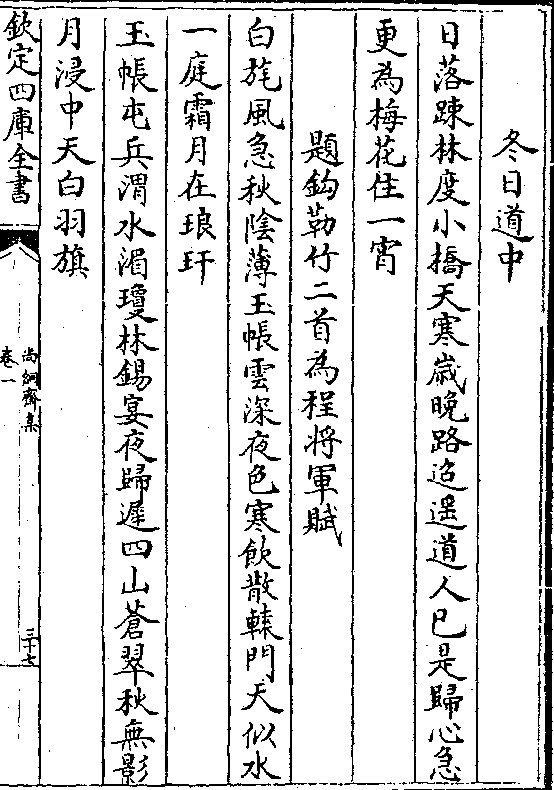 冬日道中
日落踈林度小橋天寒歳晚路迢遥道人已是歸心急
更為梅花住一宵
題鈎勒竹二首為程将軍賦
白旄風急秋陰薄玉帳雲深夜色寒飲散轅門天似水
一庭霜月在琅玕
玉帳屯兵渭水湄瓊林錫宴夜歸遲四山蒼翠秋無影
月浸中天白羽旗
欽定四庫全書
尚絅齋集
卷一
三十七